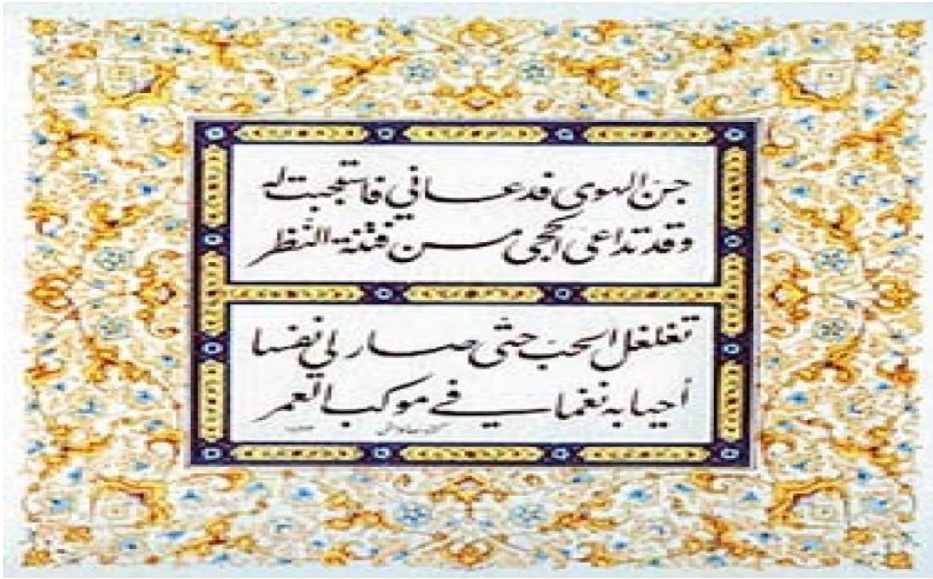 جنّ الهوى قد عاني فاستجبت له
وقد تداعى الحجى من فتنة النظر
تغلغل الحبّ حتّى صار لي نفسا
أحيا به نغما في موكب العمر